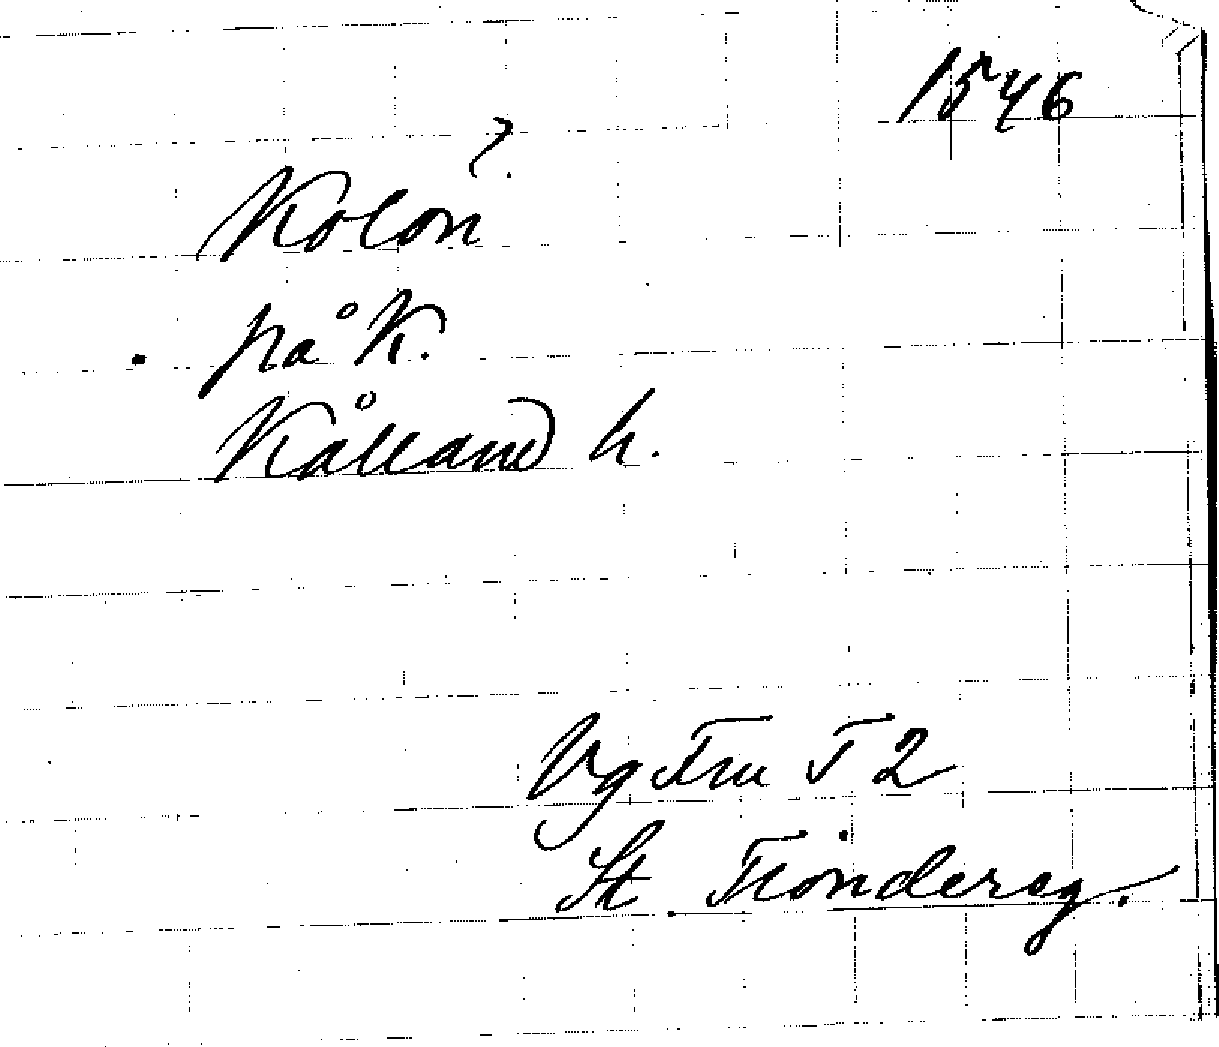 1546
?
Kolon
på K.
Kålland h.
Vg Fru T 2
St. Tiondereg.